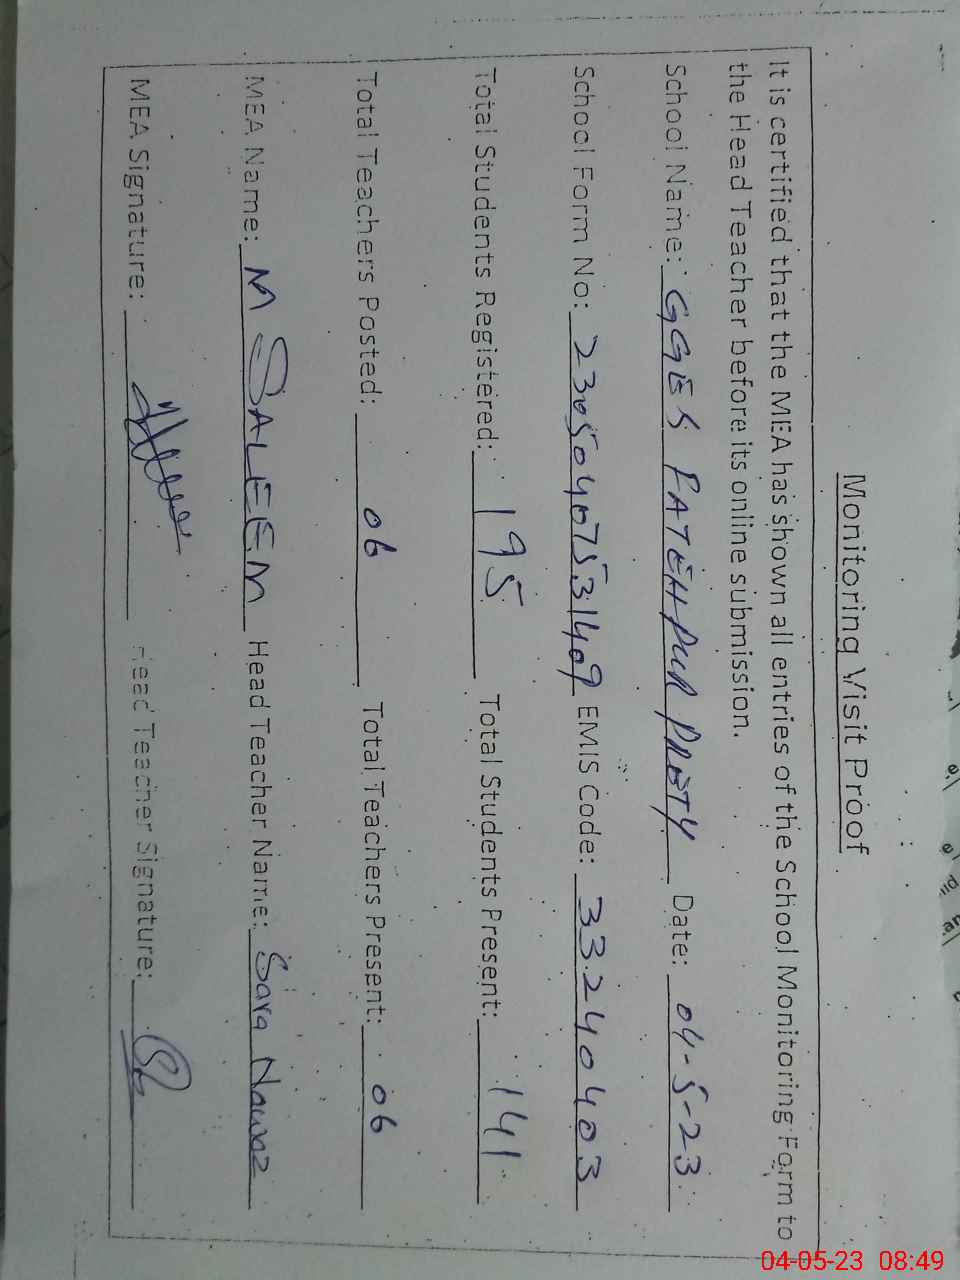 Monitoring Visit Proof
It is certified that the MEA has shown all entries of the School Monitoring Form to
the Head Teacher before its online submission.
School Name: GGES FATEHPUR PROTY Date: 04-5-23
School Form No: 23050407531409 EMIS Code: 33240403
Total Students Registered: 195 Total Students Present: 141
Total Teachers Posted: 06 Total Teachers Present: 06
MEA Name: M SALEEM Head Teacher Name: Sara Nawaz
MEA Signature: Head Teacher Signature:
04-05-23 08:49